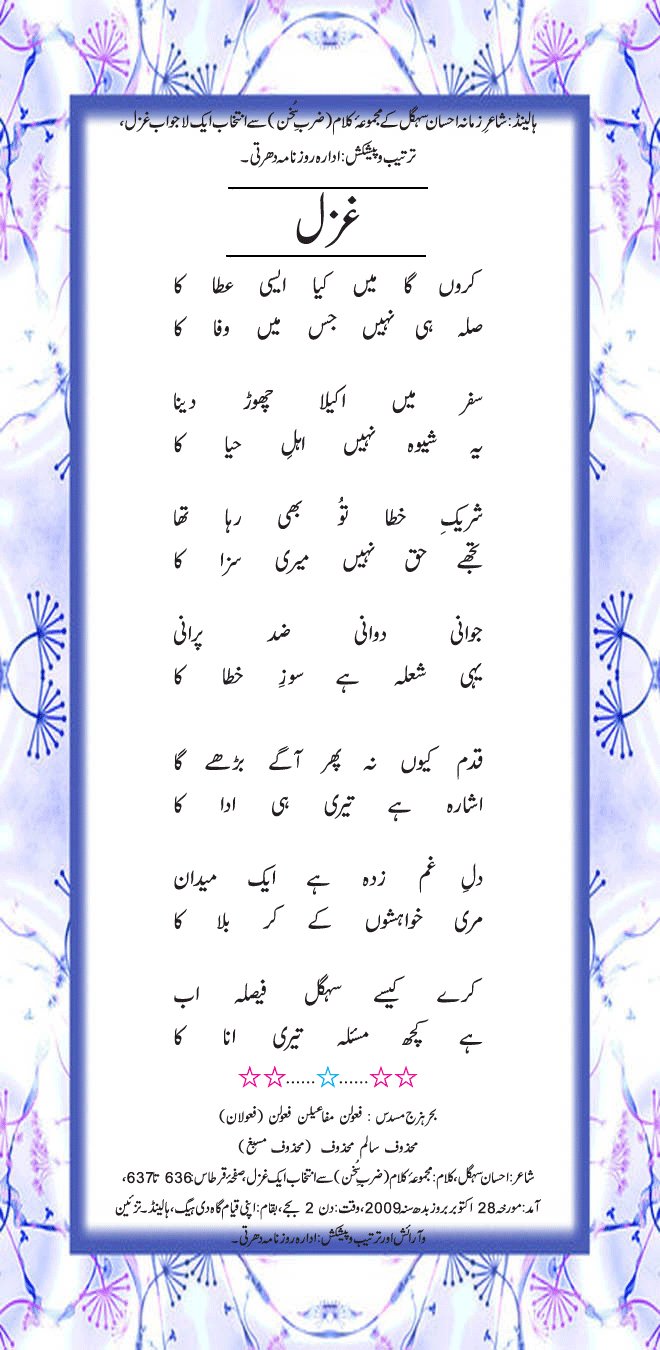 ہالینڈ: شاعرِ زمانہ احسان سہگل کے مجموعۂ کلام (ضربِ سُخن) سے انتخاب ایک لاجواب غزل،
ترتیب و پیشکش: ادارہ روزنامہ دھرتی۔
غزل
کروں گا میں کیا ایسی عطا کا
صلہ ہی نہیں جس میں وفا کا
سفر میں اکیلا چھوڑ دینا
یہ شیوہ نہیں اہلِ حیا کا
شریکِ خطا تُو بھی رہا تھا
تجھے حق نہیں میری سزا کا
جوانی دوانی ضد پرانی
یہی شعلہ ہے سوزِ خطا کا
قدم کیوں نہ پھر آگے بڑھے گا
اشارہ ہے تیری ہی ادا کا
دلِ غم زدہ ہے ایک میدان
مری خواہشوں کے کر بلا کا
کرے کیسے سہگل فیصلہ اب
ہے کچھ مسئلہ تیری انا کا
☆☆......☆......☆☆
بحر ہزج مسدس : فعولن مفاعیلن فعولن (فعولان)
محذوف سالم محذوف (محذوف مسبغ)
شاعر: احسان سہگل، کلام: مجموعۂ کلام (ضربِ سُخن) سے انتخاب ایک غزل، صفحۂ قرطاس: 636 تا 637،
آمد: مورخہ 28 اکتوبر بروز بدھ سنہ 2009، وقت: دن 2 بجے، بمقام: اپنی قیام گاہ دی ہیگ، ہالینڈ۔ تزئین
و آرائش اور ترتیب و پیشکش: ادارہ روزنامہ دھرتی۔